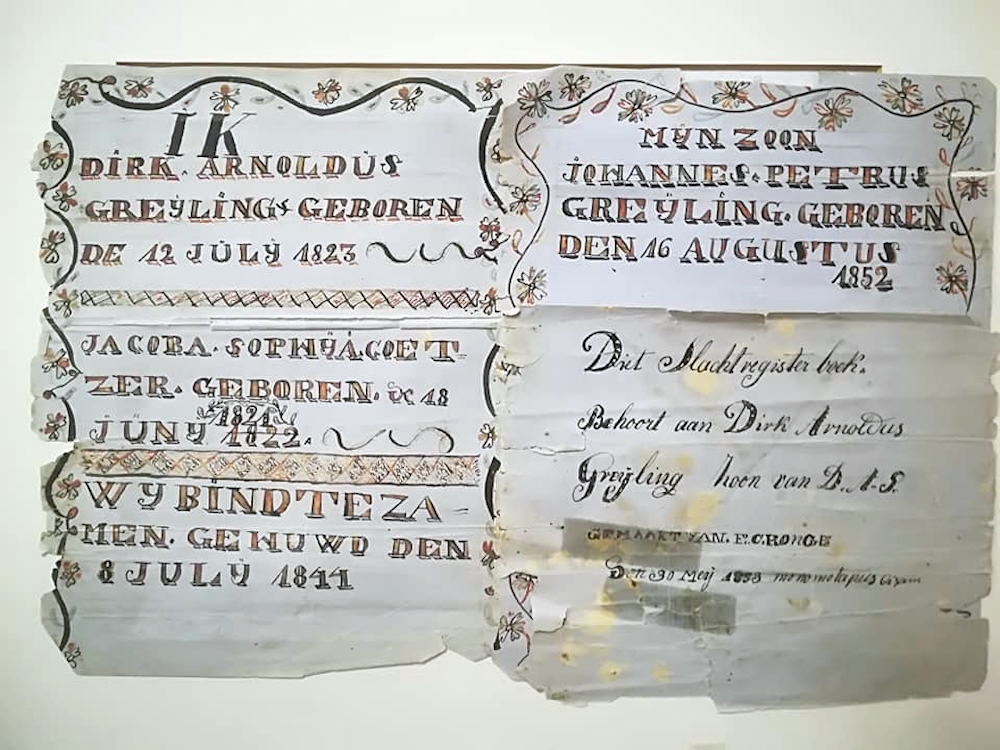 IK
DIRK. ARNOLDUS
GREŸLINGS GEBOREN
DE 12 JULŸ 1823
JACOBA. SOPHŸA COET
ZER. GEBOREN. DE 18
1821
JUNŸ 1822.
WŸ BIND TE ZA-
MEN. GEHUWD DEN
8 JULŸ 1841
MŸN ZOON
JOHANNES. PETRUS
GREŸLING. GEBOREN
DEN 16 AUGUSTUS
1852
Diet Slachtregister boek.
Behoort aan Dirk Arnoldus
Greÿling hoon van D.A.G.
GEMAAKT VAN. P. CRONGE
Den 30 Meÿ 1853